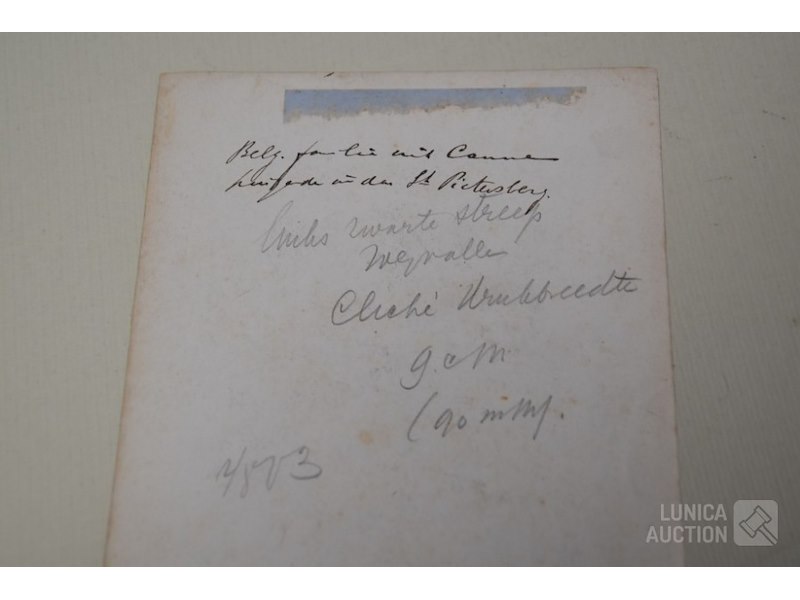 Belg. familie uit Canne
in den St Pietersberg.
links zwarte streep
wegvallen
Cliché Drukbreedte
9. cM
(90 mM).
LUNICA
AUCTION